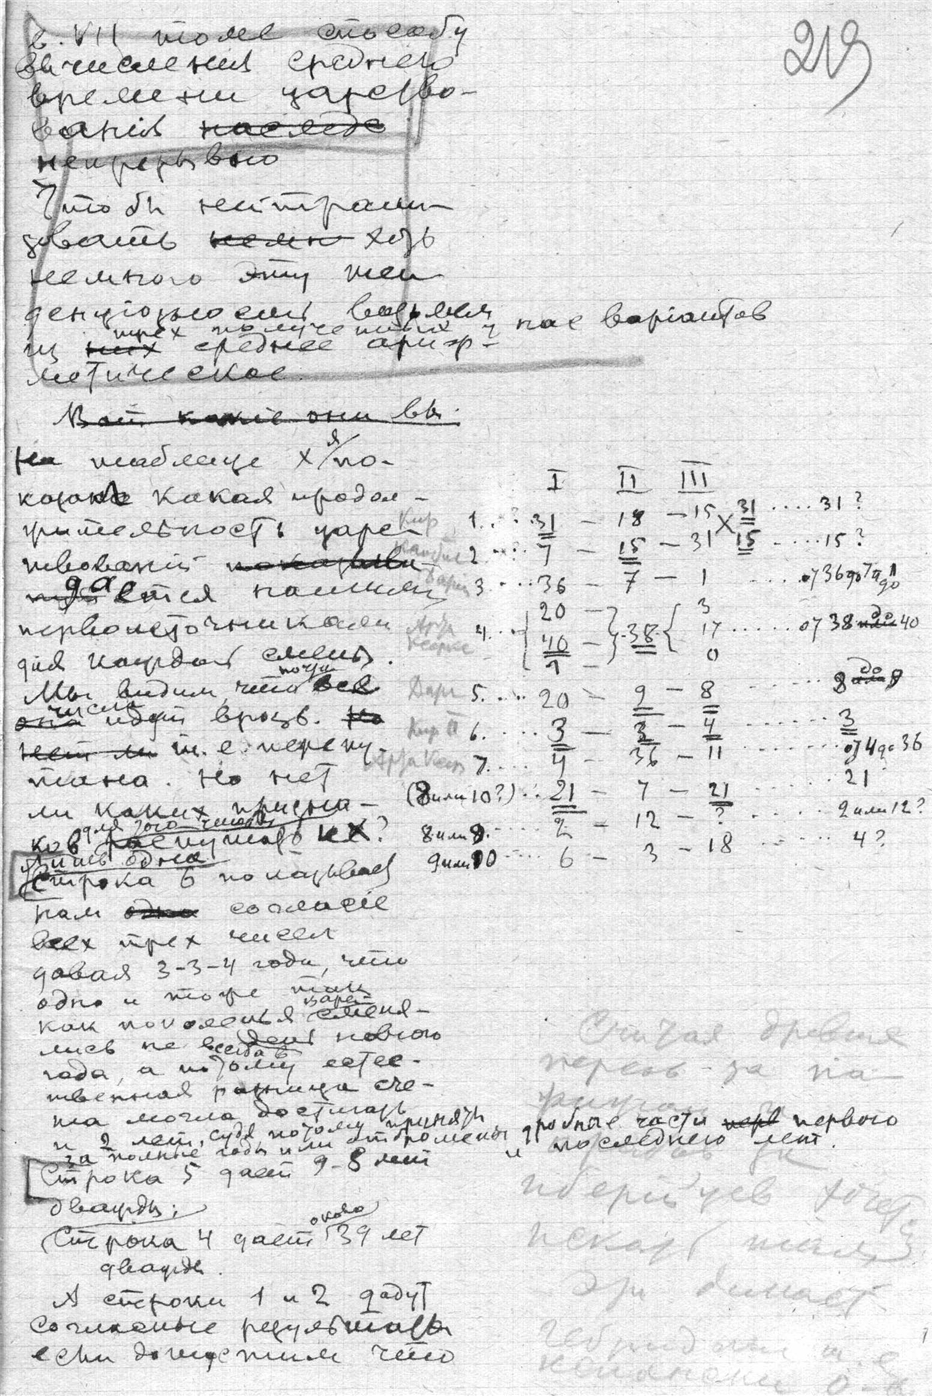 219
в. VII томе способу
вычисления среднего
времени царство-
ванiя наслед
непрерывно
Чтобы нейтрали-
зовать немн хоть
немного эту тен-
денцiозность возьмем
из них трех полученных у нас варiантов
среднее ариф-
метическое.
Вот какiе они вы.
На таблице X я по-
казал какая продол-
жительность царс-
твованiй показыва
дается нашими
первоисточниками
для каждой смены.
Мы видим что почти все
числа идут врозь.
т. е. перепу-
тана. Но нет
ли каких призна-
ков для того чтобы
распутать их?
Лишь одна
строка 6 показывает
нам одно согласiе
всех трех чисел
давая 3-3-4 года, что
одно и тоже так
как поколенья царей сменя-
лись не всегда в день нового
года, а потому естес-
твенная разница сче-
та могла достигать
и 2 лет, судя потому приняты
за полные годы или отброшены дробные части перв первого
и последнего лет.
Строка 5 дает 9-8 лет
дважды.
Строка 4 дает около 39 лет
дважды.
А строки 1 и 2 дадут
согласные результаты
если допустим что
I II III
Кир 1. 31 – 18 – 15 X 31 .... 31?
Камбиз 2 7 – 15 – 31 15 .... 15?
Дарий 3. 36 – 7 – 1 .... от 36 до 7 и до 1
Арта Ксеркс 4. 20 40 1 38 3 17 0 .... от 38 до 40
Дари 5. 20 – 9 – 8 8 до 9
Кир II 6. 3 – 3 – 4 .... 3
Арта Ксер 7. 4 – 36 – 11 .... от 4 до 36
(8 или 10?) .... 21 – 7 – 21 .... 21
8 или 9. .... 2 – 12 – ? .... 2 или 12?
9 или 10 .... 6 – 3 – 18 .... 4?
Считая древних
персов за па-
иберийцев хочет
искать
Эри династ